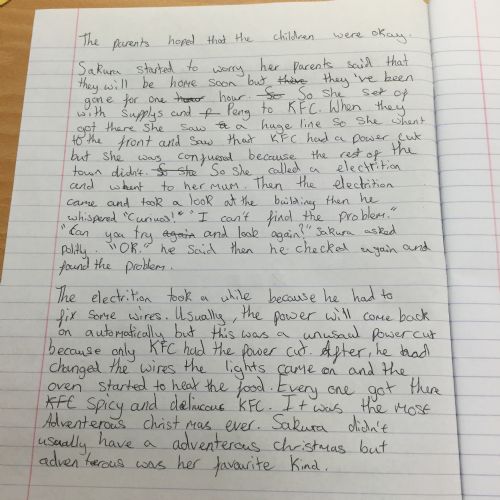 The parents hoped that the children were okay.
Sakura started to worry her parents said that
they will be home soon but there they've been
gone for one hour hour. So So she set of
with supplys and P Peng to KFC. When they
got there she saw a a huge line so she whent
to the front and saw that KFC had a power cut
but she was confuesed because the rest of the
town didn't. So She So she called a electrition
and whent to her mum. Then the electrition
came and took a look at the building then he
whispered "Curious!" "I can't find the problem."
"Can you try again and look again?" Sakura asked
polity. "OK." he said then he checked again and
found the problem.
The electrition took a while because he had to
fix some wires. Usually, the power will come back
on automatically but this was a unusaul powercut
because only KFC had the power cut. After, he had
changed the wires the lights came on and the
oven started to heat the food. Every one got there
KFC Spicy and delicuous KFC. It was the most
Adventerous christmas ever. Sakura didn't
usually have a adventerous christmas but
adventerous was her favourite kind.